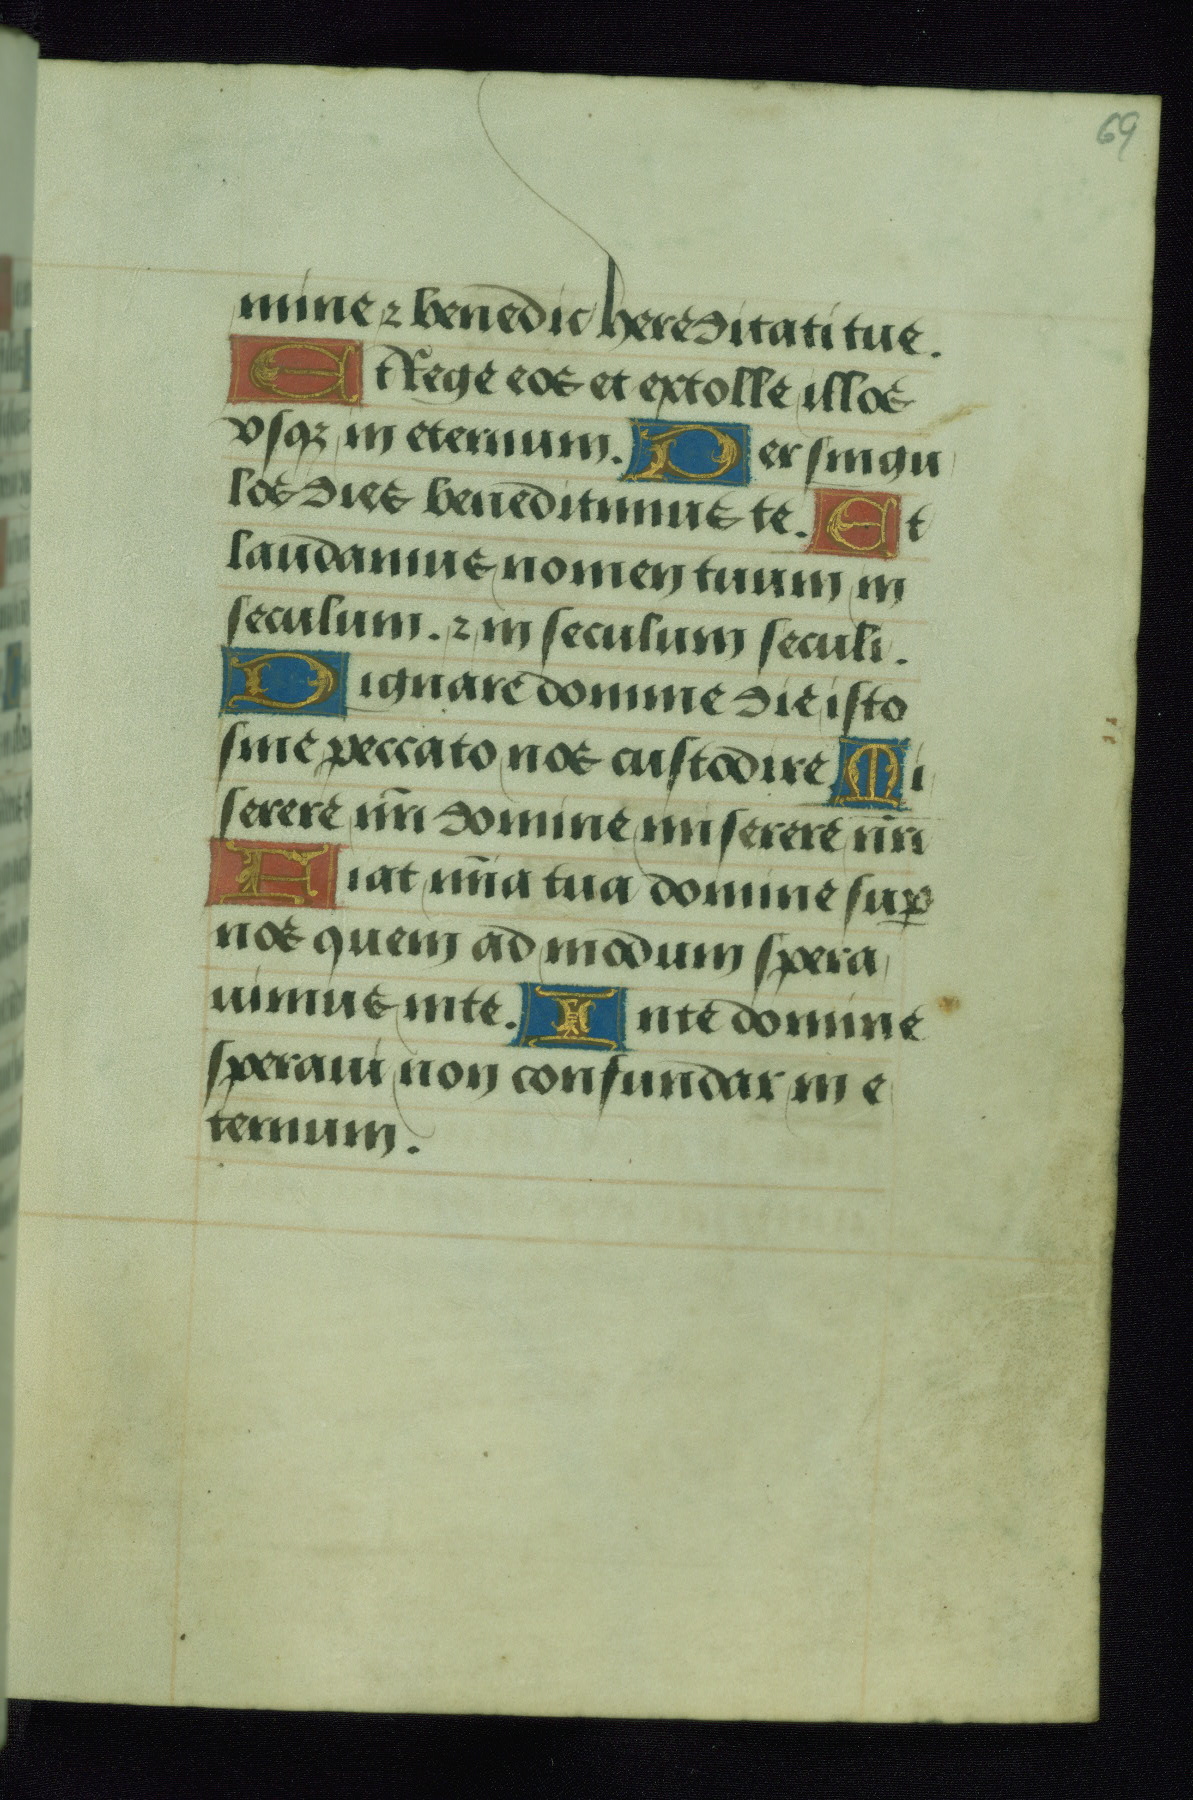 69
mine ⁊ benedic hereditati tue.
Et Rege eos et extolle illos
vsqꝫ in eternum. Per singu
los dies benedicimus te. Et
laudamus nomen tuum in
seculum. ⁊ in seculum seculi.
Dignare domine die isto
sine peccato nos custodire Mi
serere nr̄i domine miserere nr̄i
Fiat mīa tua domine suꝑ
nos quem ad modum spera
uimus in te. In te domine
speraui non confundar in e
ternum.